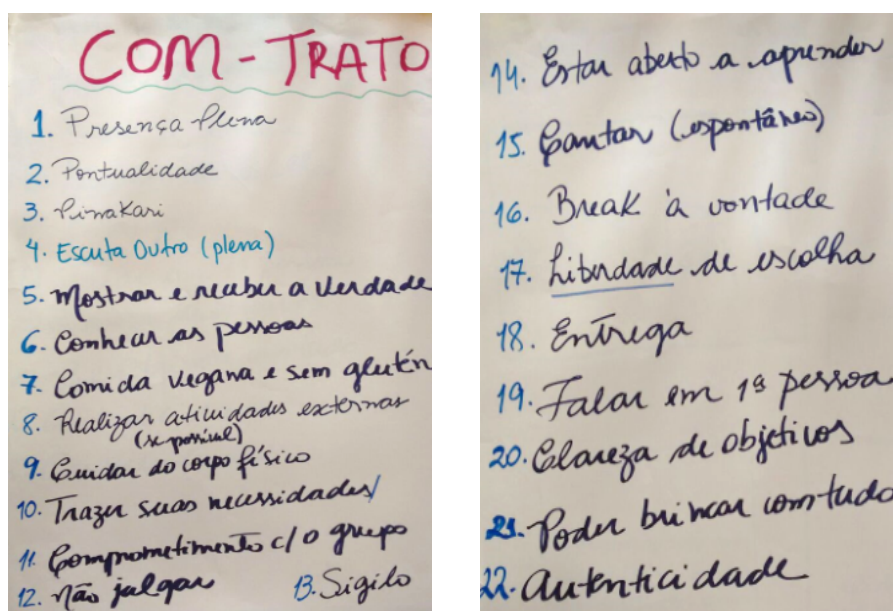 COM-TRATO
1. Presença Plena
2. Pontualidade
3. Pinakari
4. Escuta Outro (plena)
5. Mostrar e receber a verdade
6. Conhecer as pessoas
7. Comida vegana e sem glutén
8. Realizar atividades externas
(se possível)
9. Cuidar do corpo físico
10. Trazer suas necessidades/
11. Comprometimento c/o grupo
12. não julgar 13. Sigilo
14. Estar aberto a aprender
15. Cantar (espontâneo)
16. Break à vontade
17. Liberdade de escolha
18. Entrega
19. Falar em 1ª pessoa
20. Clareza de objetivos
21. Poder brincar com tudo
22. Autenticidade